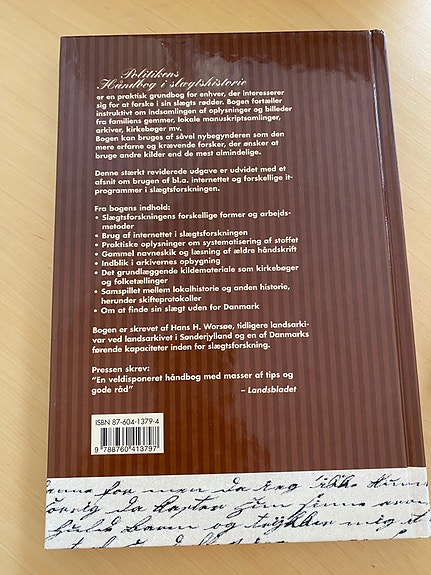 Politikens
Håndbog i slægtshistorie
er en praktisk grundbog for enhver, der interesserer
sig for at forske i sin slægts rødder. Bogen fortæller
instruktivt om indsamlingen af oplysninger og billeder
fra familiens gemmer, lokale manuskriptsamlinger,
arkiver, kirkebøger mv.
Bogen kan bruges af såvel nybegynderen som den
mere erfarne og krævende forsker, der ønsker at
bruge andre kilder end de mest almindelige.
Denne stærkt reviderede udgave er udvidet med et
afsnit om brugen af bl.a. internettet og forskellige it-
programmer i slægtsforskningen.
Fra bogens indhold:
• Slægtsforskningens forskellige former og arbejds-
metoder
• Brug af internettet i slægtsforskningen
• Praktiske oplysninger om systematisering af stoffet
• Gammel navneskik og læsning af ældre håndskrift
• Indblik i arkivernes opbygning
• Det grundlæggende kildemateriale som kirkebøger
og folketællinger
• Samspillet mellem lokalhistorie og anden historie,
herunder skifteprotokoller
• Om at finde sin slægt uden for Danmark
Bogen er skrevet af Hans H. Worsøe, tidligere landsarki-
var ved landsarkivet i Sønderjylland og en af Danmarks
førende kapaciteter inden for slægtsforskning.
Pressen skrev:
"En veldisponeret håndbog med masser af tips og
gode råd"
– Landsbladet
ISBN 87-604-1379-4
9 788760 413797
for man da jeg ikke
da
og mig